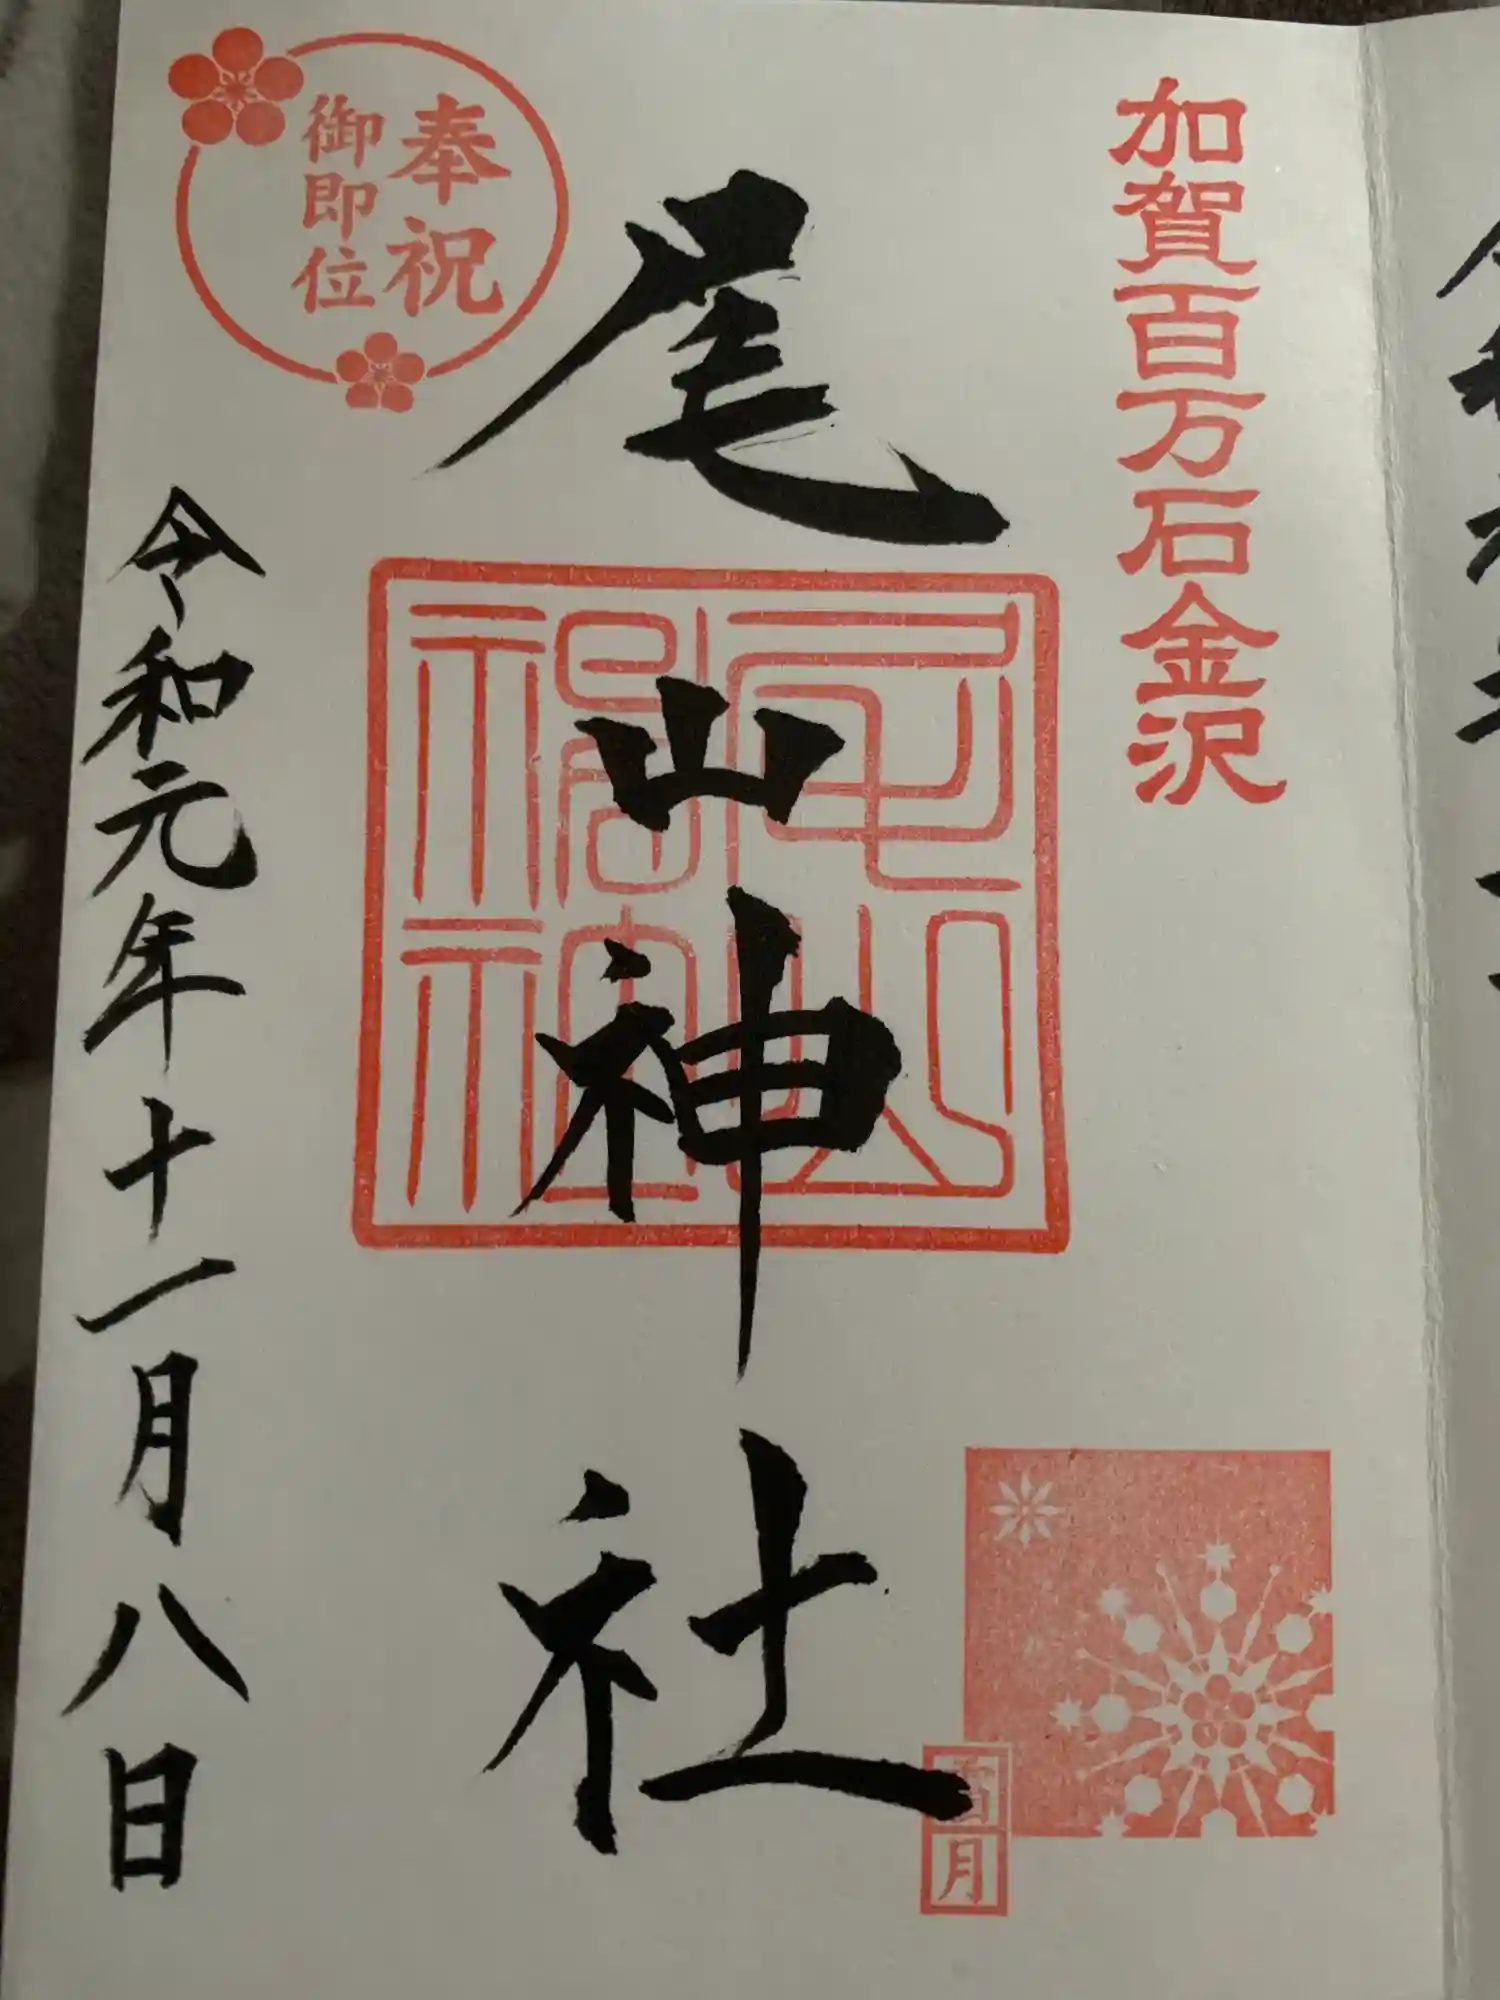 加賀百万石金沢
尾山神社
奉祝
御即位
令和元年十一月八日
尾山
神社
月